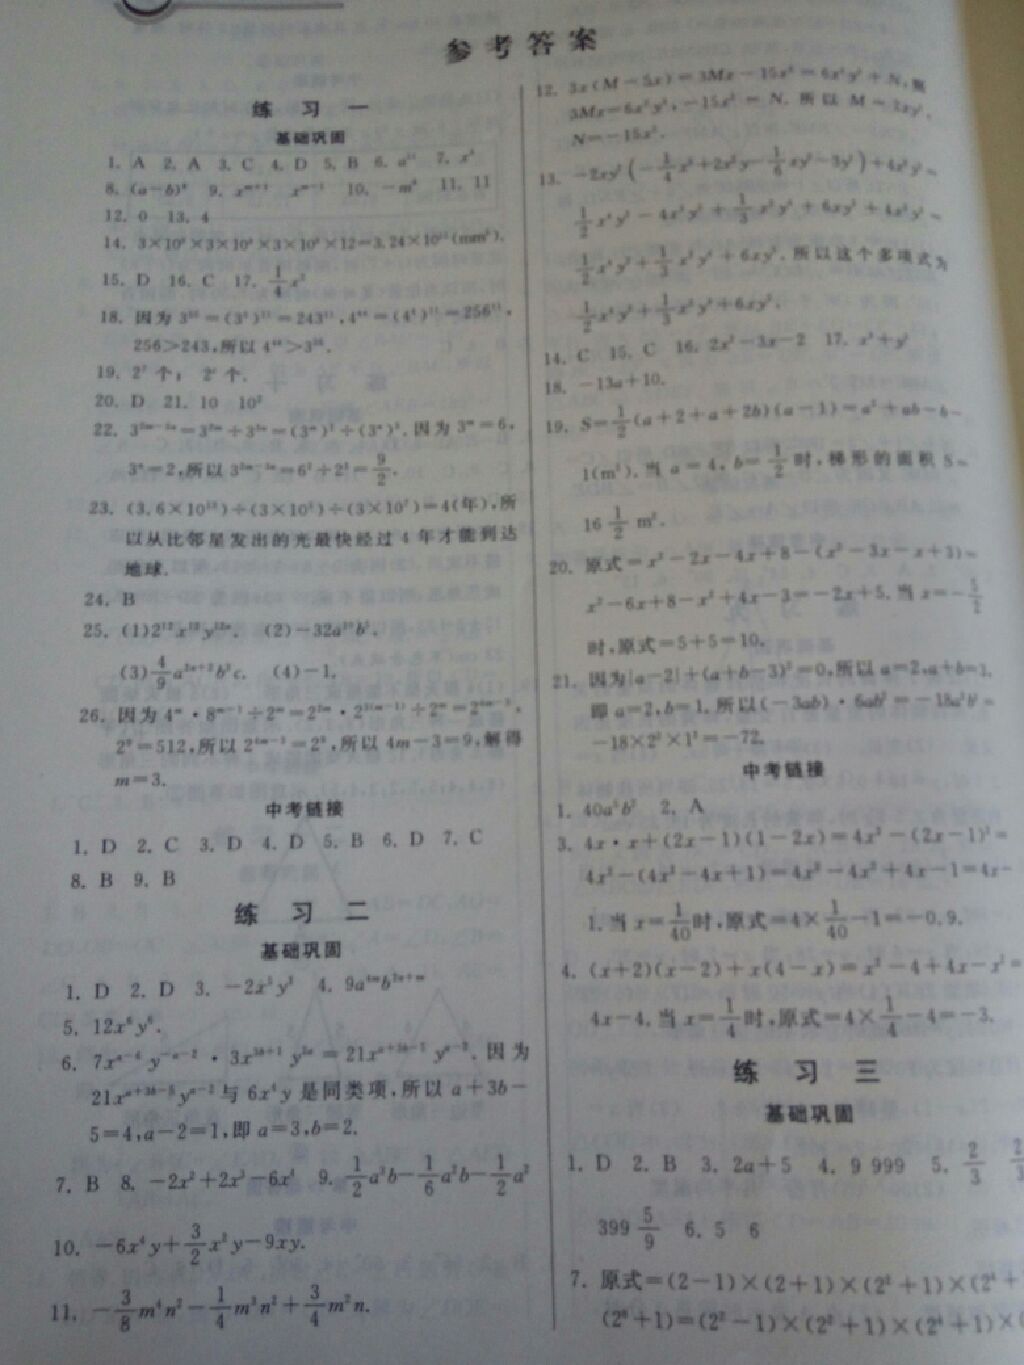 参考答案
练 习 一
基础巩固
1. A 2. A 3. C 4. D 5. B 6. a¹¹ 7. x⁴
8. (a－b)⁹ 9. xᵐ⁺² xᵐ⁻¹ 10. －m⁹ 11. 11
12. 0 13. 4
14. 3×10⁴×3×10⁴×3×10⁴×12＝3.24×10¹⁴(mm³).
15. D 16. C 17. 1/4 x²
18. 因为 3⁵⁵＝(3⁵)¹¹＝243¹¹,4⁴⁴＝(4⁴)¹¹＝256¹¹,
256＞243,所以 4⁴⁴＞3⁵⁵.
19. 2⁷ 个; 2ⁿ 个.
20. D 21. 10 10²
22. 3²ᵐ⁻³ⁿ＝3²ᵐ÷3³ⁿ＝(3ᵐ)²÷(3ⁿ)³,因为 3ᵐ＝6,
3ⁿ＝2,所以 3²ᵐ⁻³ⁿ＝6²÷2³＝9/2.
23. (3.6×10¹³)÷(3×10⁵)÷(3×10⁷)＝4(年),所
以从比邻星发出的光最快经过 4 年才能到达
地球.
24. B
25. (1)2¹²x¹²y¹²ⁿ. (2)－32a¹⁰b⁵.
(3)4/9 a²ⁿ⁺²b²c. (4)－1.
26. 因为 4ᵐ·8ᵐ⁻¹÷2ᵐ＝2²ᵐ·2³⁽ᵐ⁻¹⁾÷2ᵐ＝2⁴ᵐ⁻³,
2⁹＝512,所以 2⁴ᵐ⁻³＝2⁹,所以 4m－3＝9,解得
m＝3.
中考链接
1. D 2. C 3. D 4. D 5. B 6. D 7. C
8. B 9. B
练 习 二
基础巩固
1. D 2. D 3. －2x³y³ 4. 9a⁴ᵐb²ⁿ⁺ᵐ
5. 12x⁶y⁶.
6. 7xᵃ⁻⁶y⁻ᵃ⁻²·3x³ᵇ⁺¹y²ᵃ＝21xᵃ⁺³ᵇ⁻⁵yᵃ⁻². 因为
21xᵃ⁺³ᵇ⁻⁵yᵃ⁻²与 6x⁴y 是同类项,所以 a＋3b－
5＝4,a－2＝1,即 a＝3,b＝2.
7. B 8. －2x²＋2x³－6x⁴ 9. 1/2 a³b－1/6 a²b－1/2 a²
10. －6x⁴y＋3/2 x²y－9xy.
11. －3/8 m⁴n²－1/4 m³n²＋3/4 m²n.
12. 3x(M－5x)＝3Mx－15x²＝6x²y³＋N,则
3Mx＝6x²y³,－15x²＝N. 所以 M＝2xy³,
N＝－15x².
13. －2xy²(－1/4 x³＋2x²y－1/6 xy²－3y³)＋4x³y³＝
1/2 x⁴y²－4x³y³＋1/3 x²y⁴＋6xy⁵＋4x³y³＝
1/2 x⁴y²＋1/3 x²y⁴＋6xy⁵. 所以这个多项式为
1/2 x⁴y²＋1/3 x²y⁴＋6xy⁵.
14. C 15. C 16. 2x²－3x－2 17. x³＋y³
18. －13a＋10.
19. S＝1/2(a＋2＋a＋2b)(a－1)＝a²＋ab－b－
1(m²). 当 a＝4, b＝1/2 时,梯形的面积 S＝
16 1/2 m².
20. 原式＝x²－2x－4x＋8－(x²－3x－x＋3)＝
x²－6x＋8－x²＋4x－3＝－2x＋5. 当 x＝－5/2
时,原式＝5＋5＝10.
21. 因为|a－2|＋(a＋b－3)²＝0,所以 a＝2,a＋b＝3,
即 a＝2,b＝1. 所以(－3ab)·6ab²＝－18a²b³＝
－18×2²×1³＝－72.
中考链接
1. 40a⁵b² 2. A
3. 4x·x＋(2x－1)(1－2x)＝4x²－(2x－1)²＝
4x²－(4x²－4x＋1)＝4x²－4x²＋4x－1＝4x－
1. 当 x＝1/40时,原式＝4×1/40－1＝－0.9.
4. (x＋2)(x－2)＋x(4－x)＝x²－4＋4x－x²＝
4x－4. 当 x＝1/4时,原式＝4×1/4－4＝－3.
练 习 三
基础巩固
1. D 2. B 3. 2a＋5 4. 9 999 5. 2/3 2/3
399 5/9 6. 5 6
7. 原式＝(2－1)×(2＋1)×(2²＋1)×(2⁴＋
(2⁸＋1)＝(2²－1)×(2²＋1)×(2⁴＋1)×